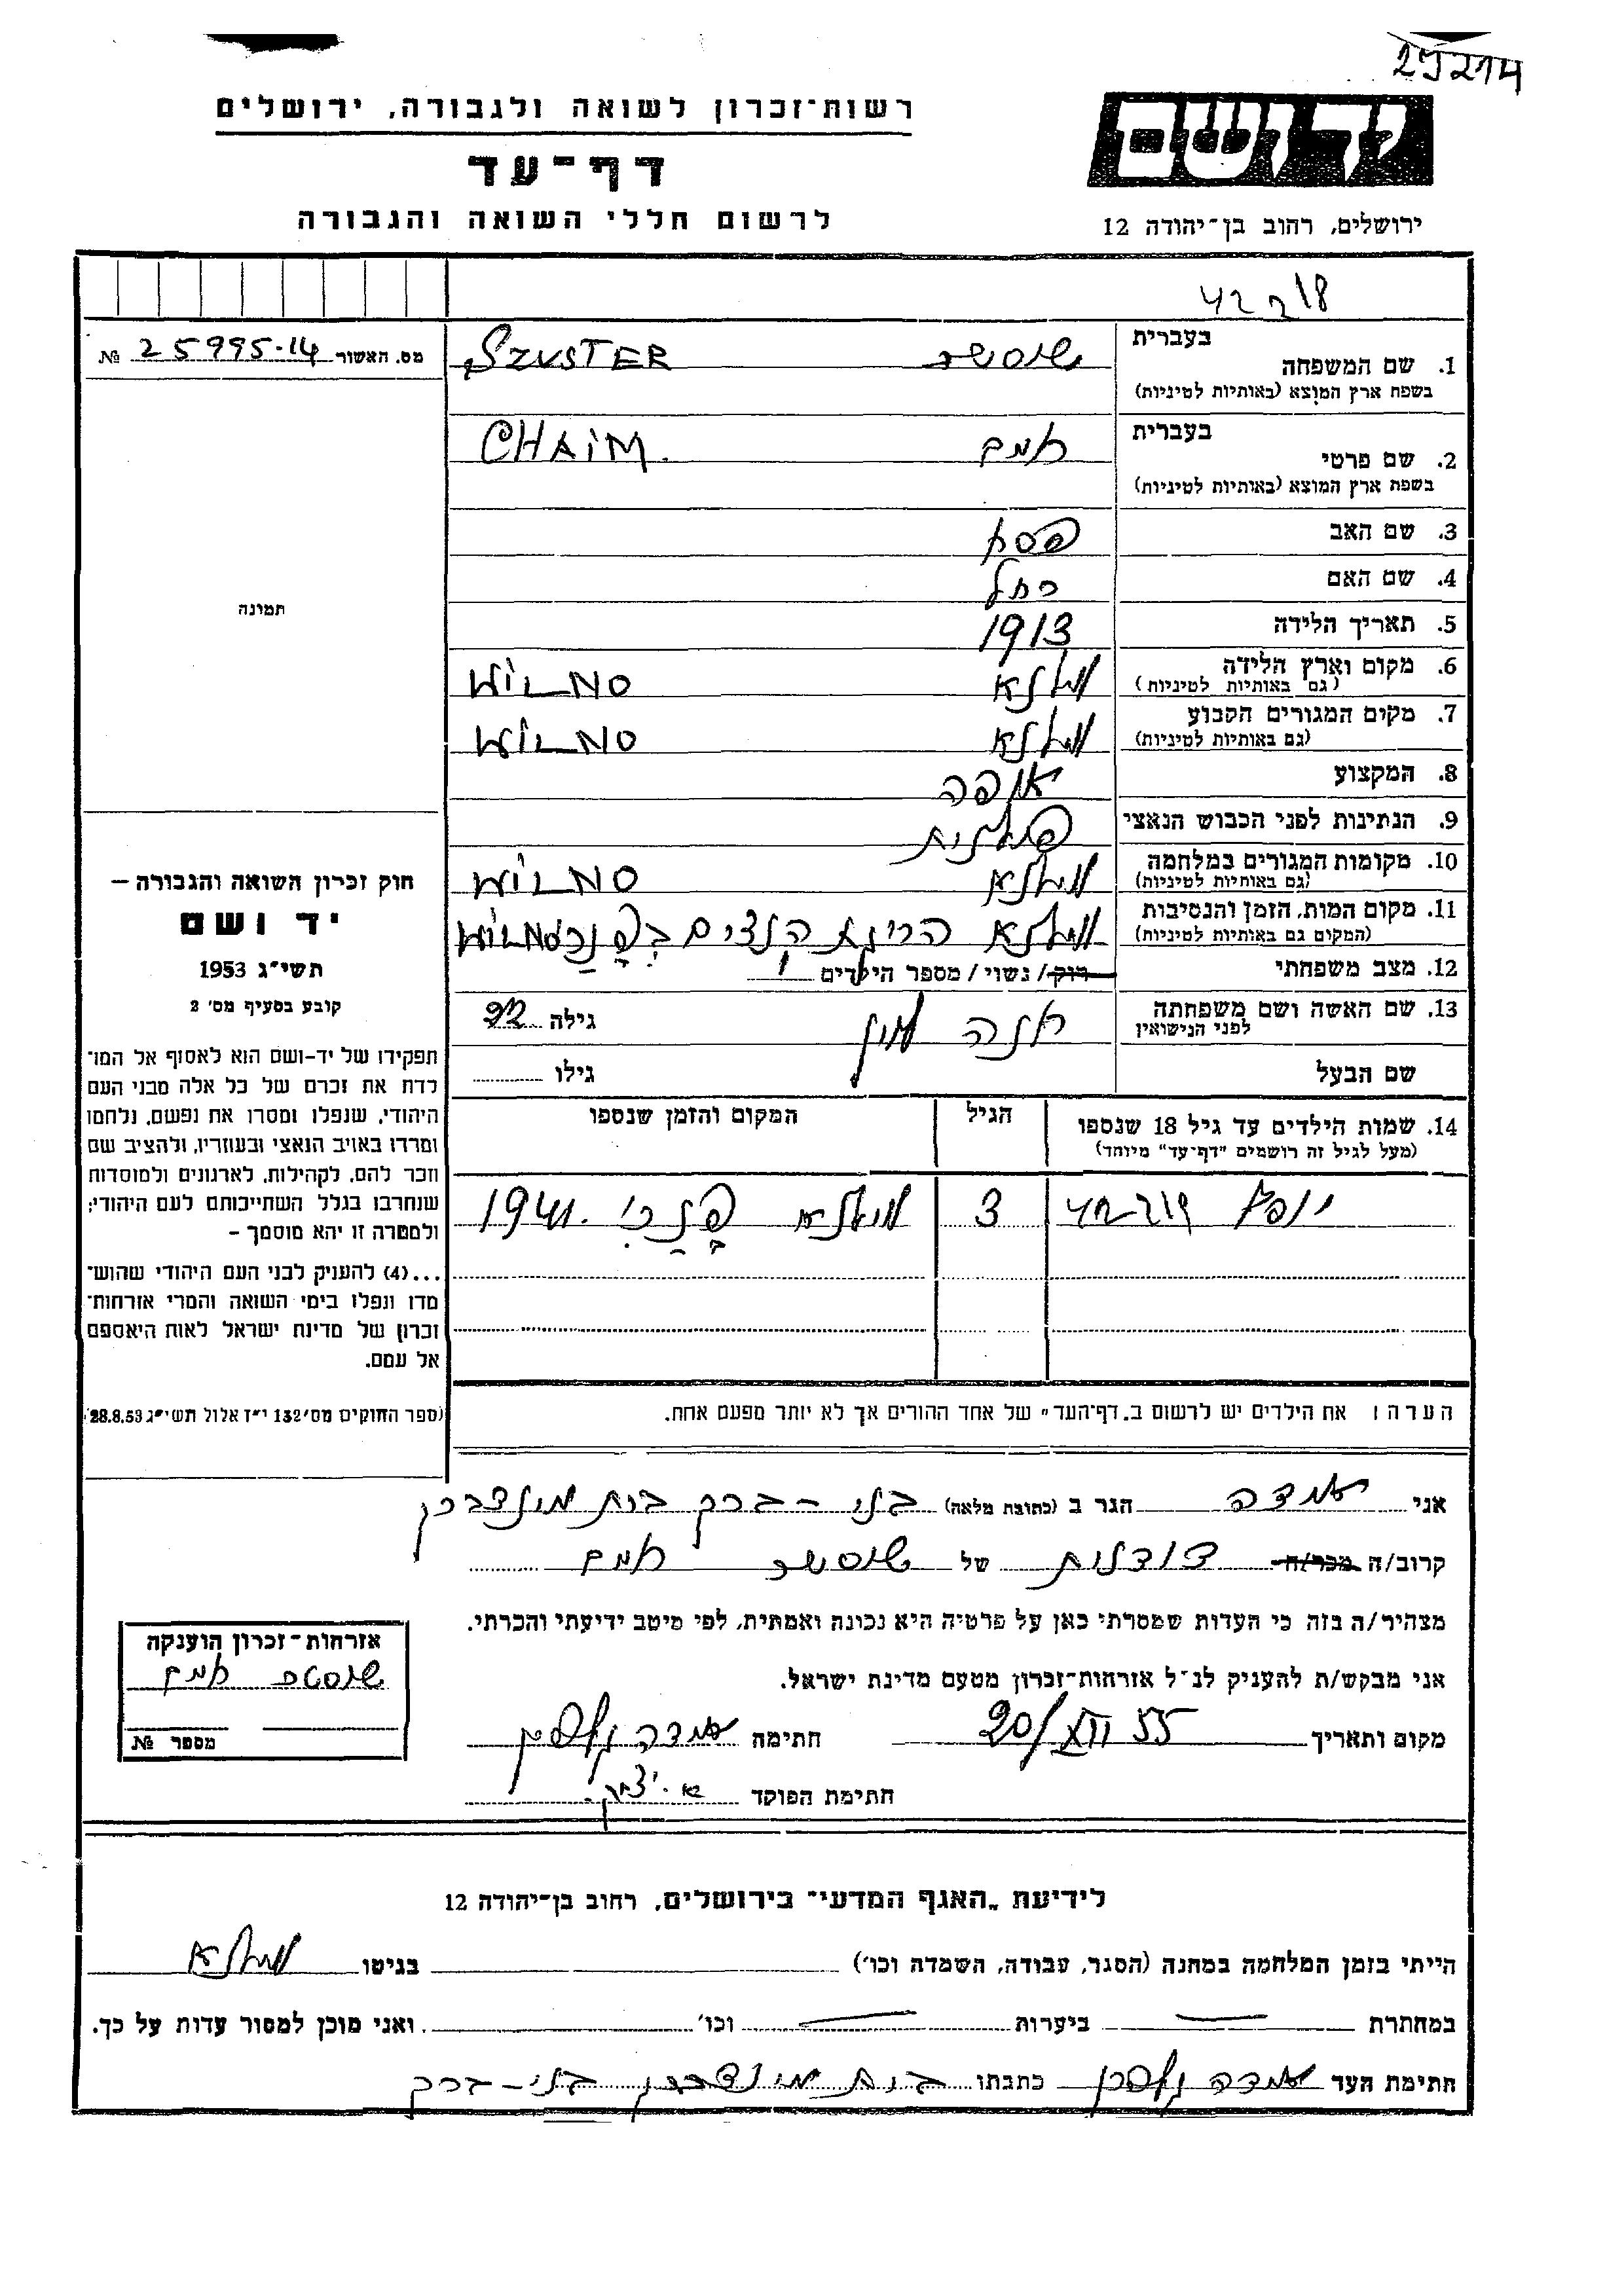 29214
רשות־זכרון לשואה ולגבורה, ירושלים
דף־עד
לרשום חללי השואה והגבורה
יד ושם
ירושלים, רחוב בן־יהודה 12
מס. האשור 25995-14 №
תמונה
חוק זכרון השואה והגבורה —
יד ושם
תשי״ג 1953
קובע בסעיף מס׳ 2
תפקידו של יד-ושם הוא לאסוף אל המו־
לדת את זכרם של כל אלה מבני העם
היהודי, שנפלו ומסרו את נפשם, נלחמו
ומרדו באויב הנאצי ובעוזריו, ולהציב שם
וזכר להם, לקהילות, לארגונים ולמוסדות
שנחרבו בגלל השתייכותם לעם היהודי;
ולמטרה זו יהא מוסמך —
...(4) להעניק לבני העם היהודי שהוש־
מדו ונפלו בימי השואה והמרי אזרחות־
זכרון של מדינת ישראל לאות היאספם
אל עמם.
(ספר החוקים מס׳ 132 י״ז אלול תשי״ג 28.8.53)
בעברית
1. שם המשפחה שוסטר SZUSTER
בשפת ארץ המוצא (באותיות לטיניות)
בעברית
2. שם פרטי חיים CHAIM.
בשפת ארץ המוצא (באותיות לטיניות)
3. שם האב פסח
4. שם האם רחל
5. תאריך הלידה 1913
6. מקום וארץ הלידה וילנא WILNO
(גם באותיות לטיניות)
7. מקום המגורים הקבוע וילנא WILNO
(גם באותיות לטיניות)
8. המקצוע אופה
9. הנתינות לפני הכבוש הנאצי פולנית
10. מקומות המגורים במלחמה וילנא WILNO
(גם באותיות לטיניות)
11. מקום המות, הזמן והנסיבות וילנא WILNO
(המקום גם באותיות לטיניות)
12. מצב משפחתי רווק / נשוי / מספר הילדים 1
13. שם האשה ושם משפחתה חנה גילה 22
לפני הנישואין
שם הבעל גילו
14. שמות הילדים עד גיל 18 שנספו הגיל המקום והזמן שנספו
(מעל לגיל זה רושמים "דף־עד" מיוחד)
3 וילנא פונר 1941
הערה: את הילדים יש לרשום ב„דף־העד״ של אחד ההורים אך לא יותר מפעם אחת.
אני הגר ב (כתובת מלאה) בני-ברק
קרוב/ה מכר/ה של שוסטר חיים
מצהיר/ה בזה כי העדות שמסרתי כאן על פרטיה היא נכונה ואמתית, לפי מיטב ידיעתי והכרתי.
אני מבקש/ת להעניק לנ״ל אזרחות־זכרון מטעם מדינת ישראל.
מקום ותאריך 20/XII 55 חתימה
חתימת הפוקד
אזרחות־זכרון הוענקה
שוסטר חיים
מספר №
לידיעת „האגף המדעי״ בירושלים, רחוב בן־יהודה 12
הייתי בזמן המלחמה במחנה (הסגר, עבודה, השמדה וכו׳) בגיטו וילנא
במחתרת ביערות וכו׳ ואני מוכן למסור עדות על כך.
חתימת העד כתבתו בני-ברק